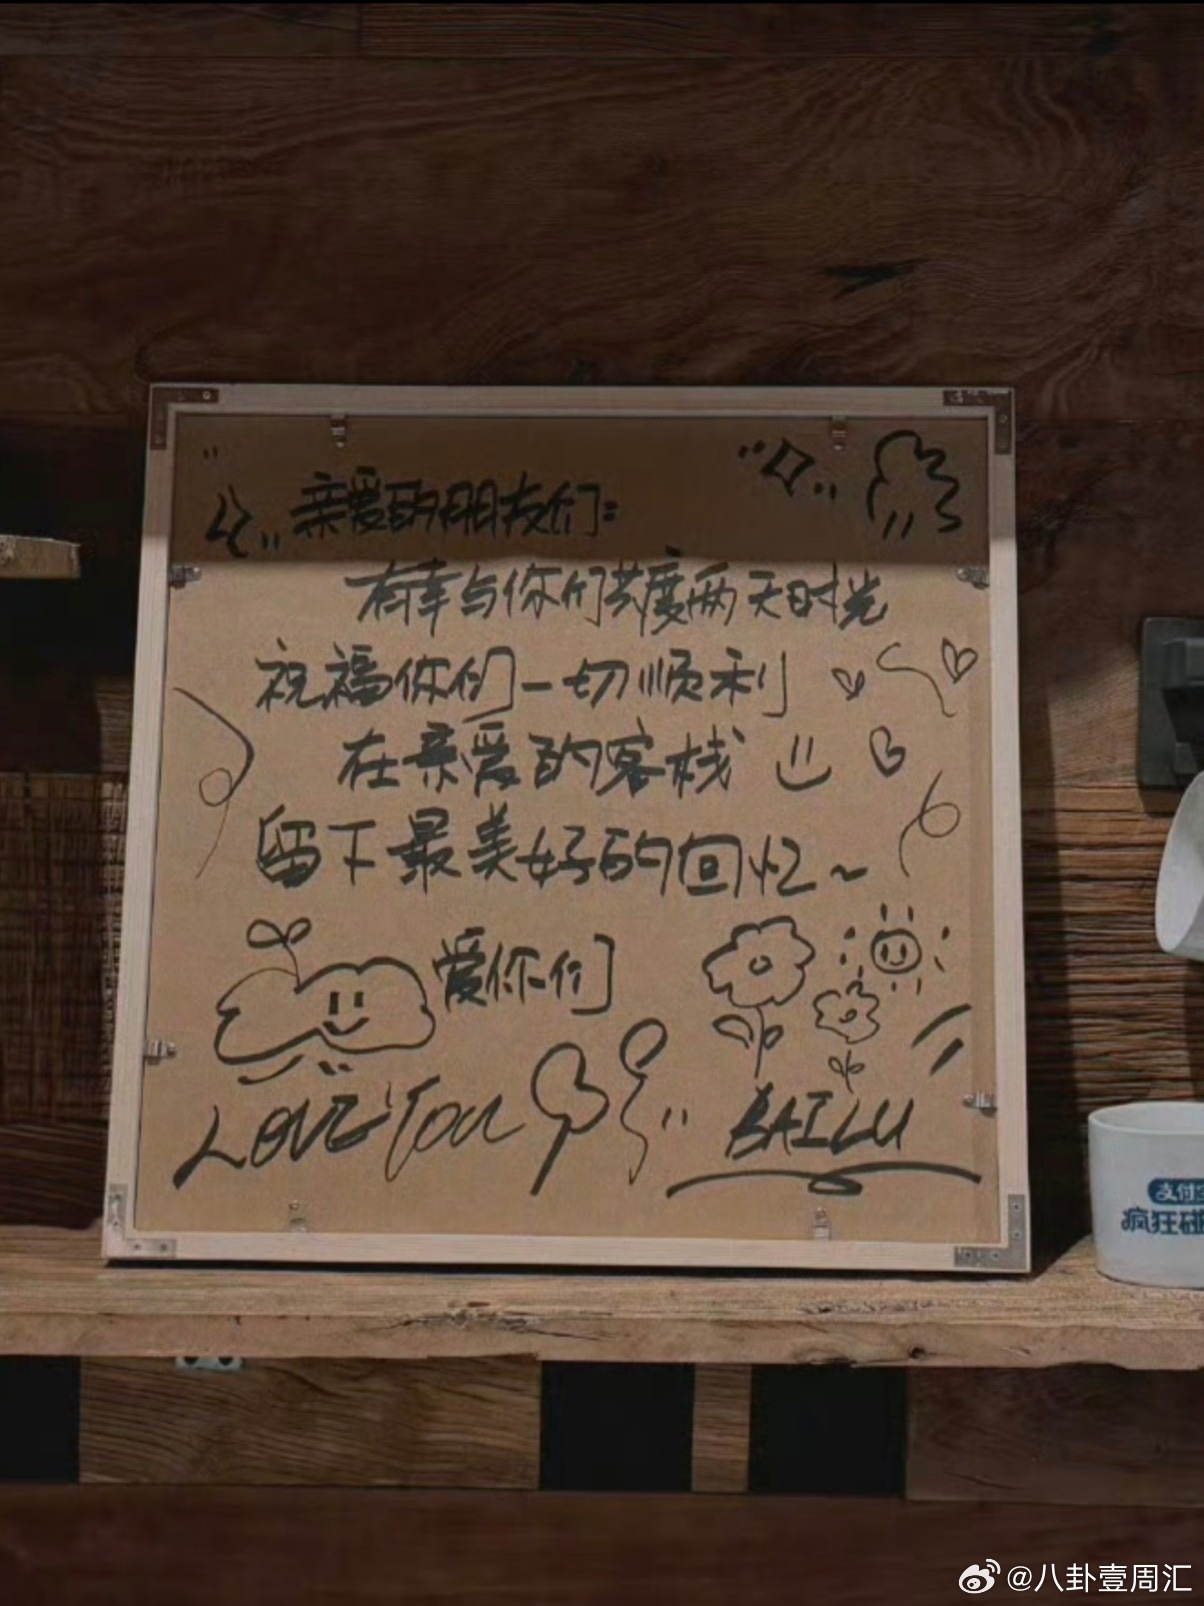 亲爱的朋友们:
有幸与你们共度两天时光
祝福你们一切顺利
在亲爱的客栈
留下最美好的回忆~
爱你们
LOVE You
BAILU
支付
疯狂碰
@八卦壹周汇